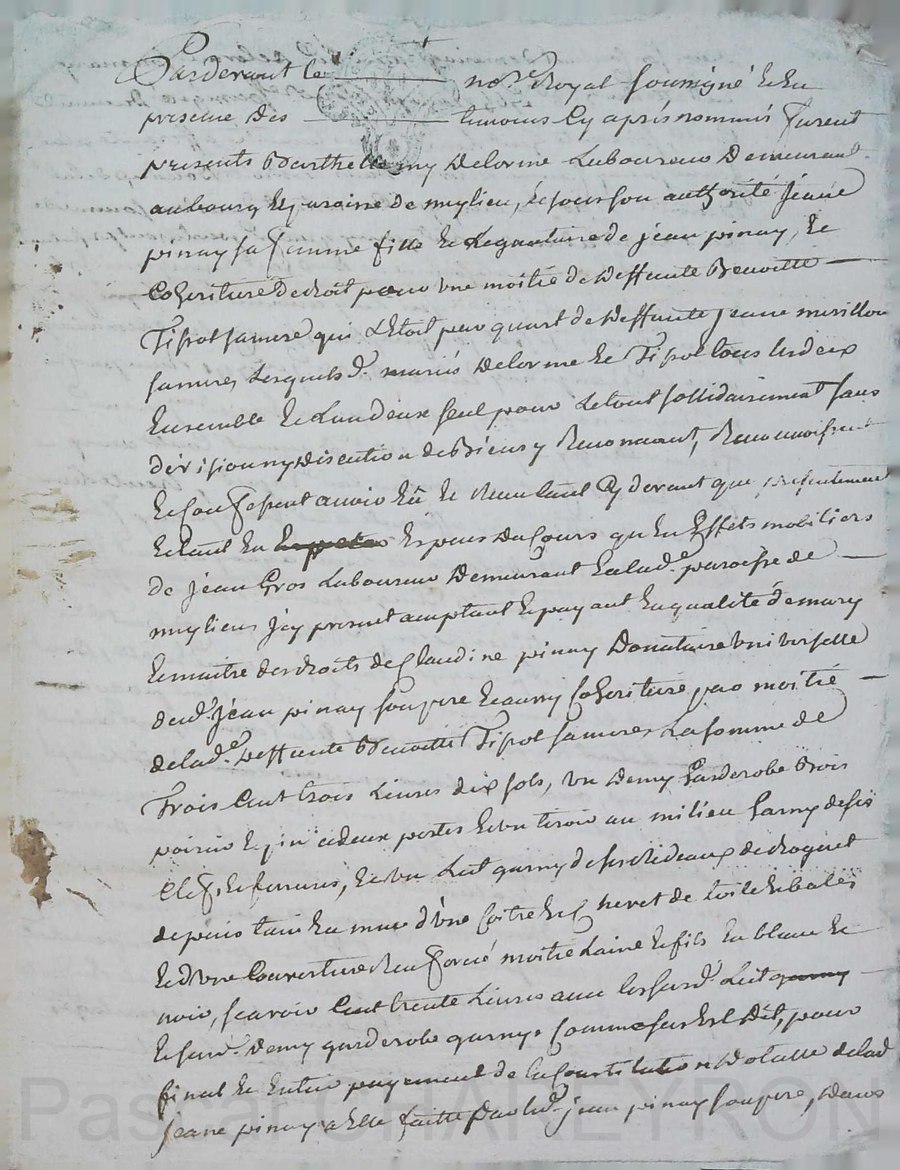 Pardevant le no.re Royal soussigné et en
presence des temoins cy apres nommés furent
presents Barthelemy Delorme Laboureur Demeurant
au bourg et paroisse de mylieu, et sous son authorité Jeane
pinay sa famme fille et Legataire de jean pinay, et
Coheritiere de droit pour une moitié de deffunte Benoitte
Tipot sa mere qui L'Etoit pour quart de deffunte jeane
sa mere, Lesquels d. mariés Delorme et Tipot tous Les deux
Ensemble et L'un d'eux seul pour Le tout sollidairement sans
division ny discution de Biens y Renoncant,
et Confessent avoir Eû et Receu tant Cy devant que presentement
et tant en Especes du Cours qu'en Effets mobiliers
de jean Gros Laboureur Demeurant En lad.e paroisse de
mylieu jcy present acceptant et payant En qualité de mary
et maitre des droits de Claudine pinay Donataire universelle
dud. jean pinay son pere et aussy Coheritiere pour moitié
de lad.e deffunte Benoitte Tipot sa mere La somme de
Trois Cent trois Livres dix sols, un Demy Garderobe Bois
poirier et pin a deux portes et un tiroir au milieu Garny de ses
Clefs et ferrures, et un Lit garny de ses Rideaux de droguet
d'une Coitre et Chevet de toile
et d'une Couverture moitié Laine et fils En blanc et
noir, scavoir Cent trente Livres avec Les susd. Lit garny
et susd. Demy garderobe garny Comme sus Est Dit, pour
final et Entier payement de la Constitution Dotalle de lad.
jeane pinay a Elle faitte par led. jean pinay son pere, dans
Pascal CHAREYRON